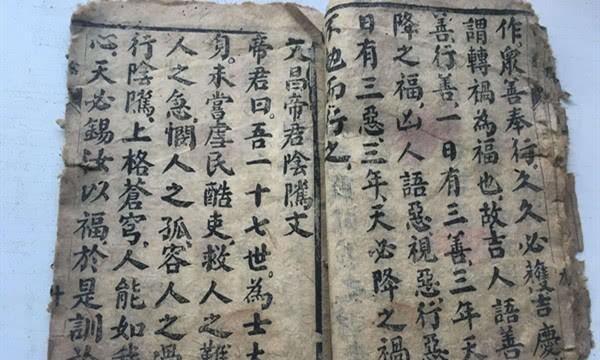 作,眾善奉行,久久必獲吉慶
謂轉禍為福也故吉人語善
善行善一日有三善,三年天
降之福,凶人語惡視惡,行惡
日有三惡,三年,天必降之禍
不勉而行之
文昌帝君陰騭文
帝君曰。吾一十七世。為士大
身。未嘗虐民酷吏,救人之難
人之急,憫人之孤,容人之過
行陰騭上格蒼穹,人能如我
心,天必錫汝以福,於是訓於